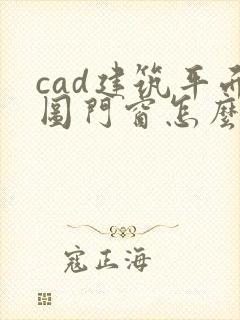 cad建筑平面
圖門窗怎麼
寇正海